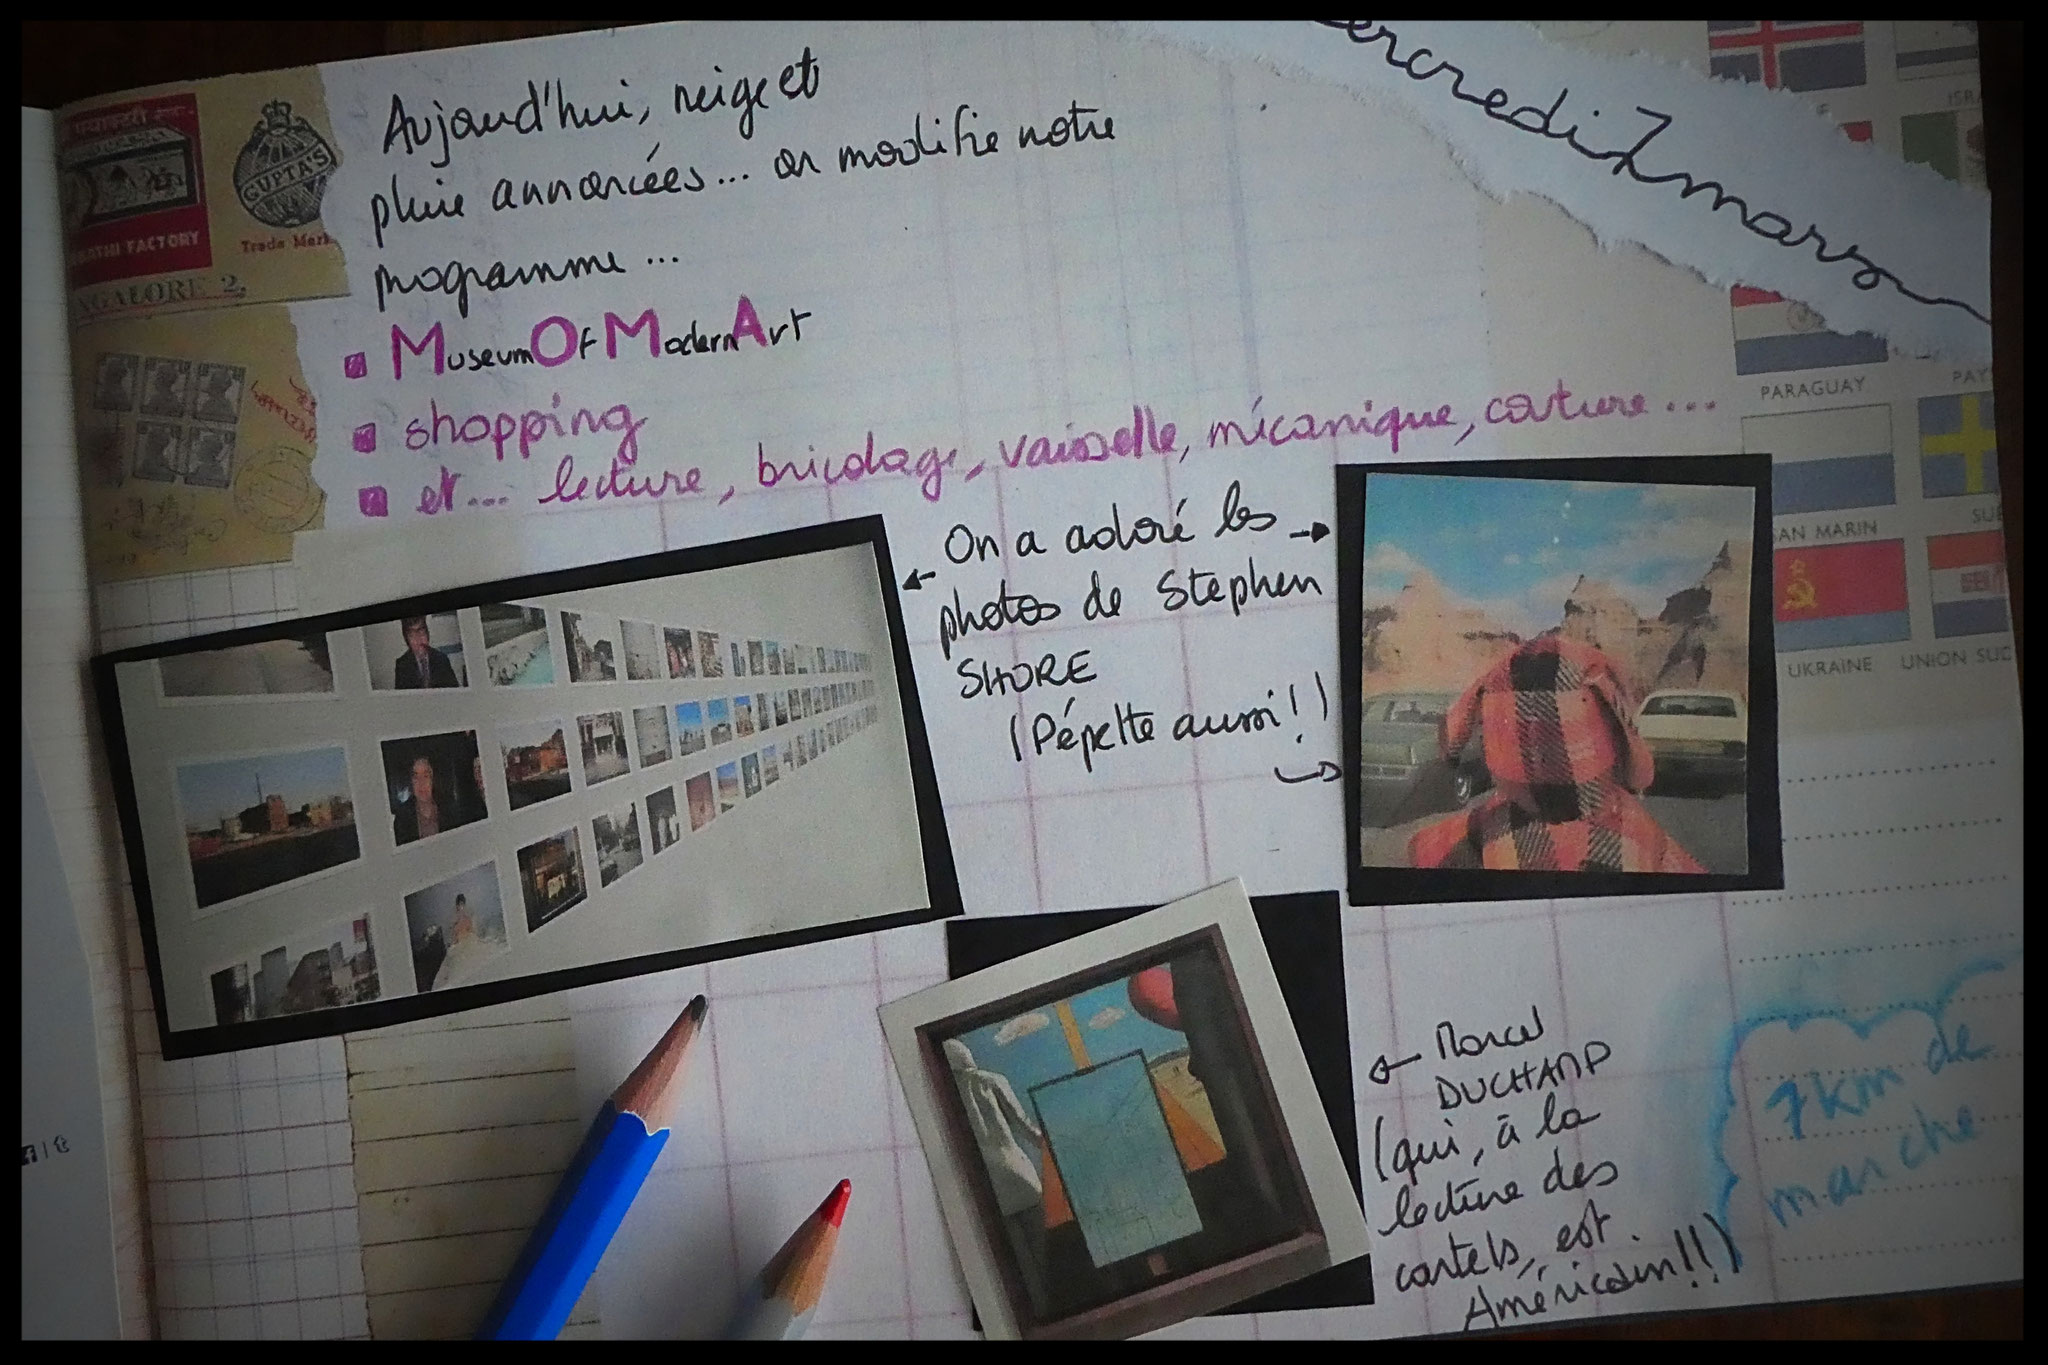 ercredi 7 mars
Aujourd'hui, neige et
pluie annoncées... on modifie notre
programme...
Museum Of Modern Art
shopping
et... lecture, bricolage, vaisselle, mécanique, couture...
On a adoré les
photos de Stephen
SHORE
(Pépette aussi!)
Marcel
DUCHAMP
(qui, à la
lecture des
cartels, est
Américain!!)
7km de
marche
GUPTA'S
Trade Mark
ATHI FACTORY
NGALORE 2,
PARAGUAY
PAY
SAN MARIN
SUE
UKRAINE
UNION SUD
ISRA